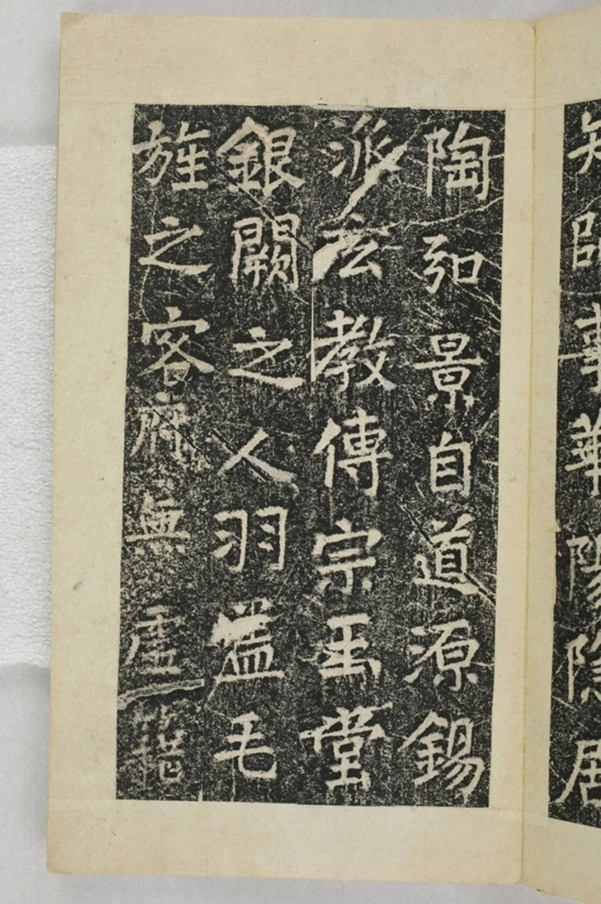 知師事華陽隱居
陶弘景自道源錫
派玄教傳宗玉堂
銀闕之人羽蓋毛
旌之客府無虛籍